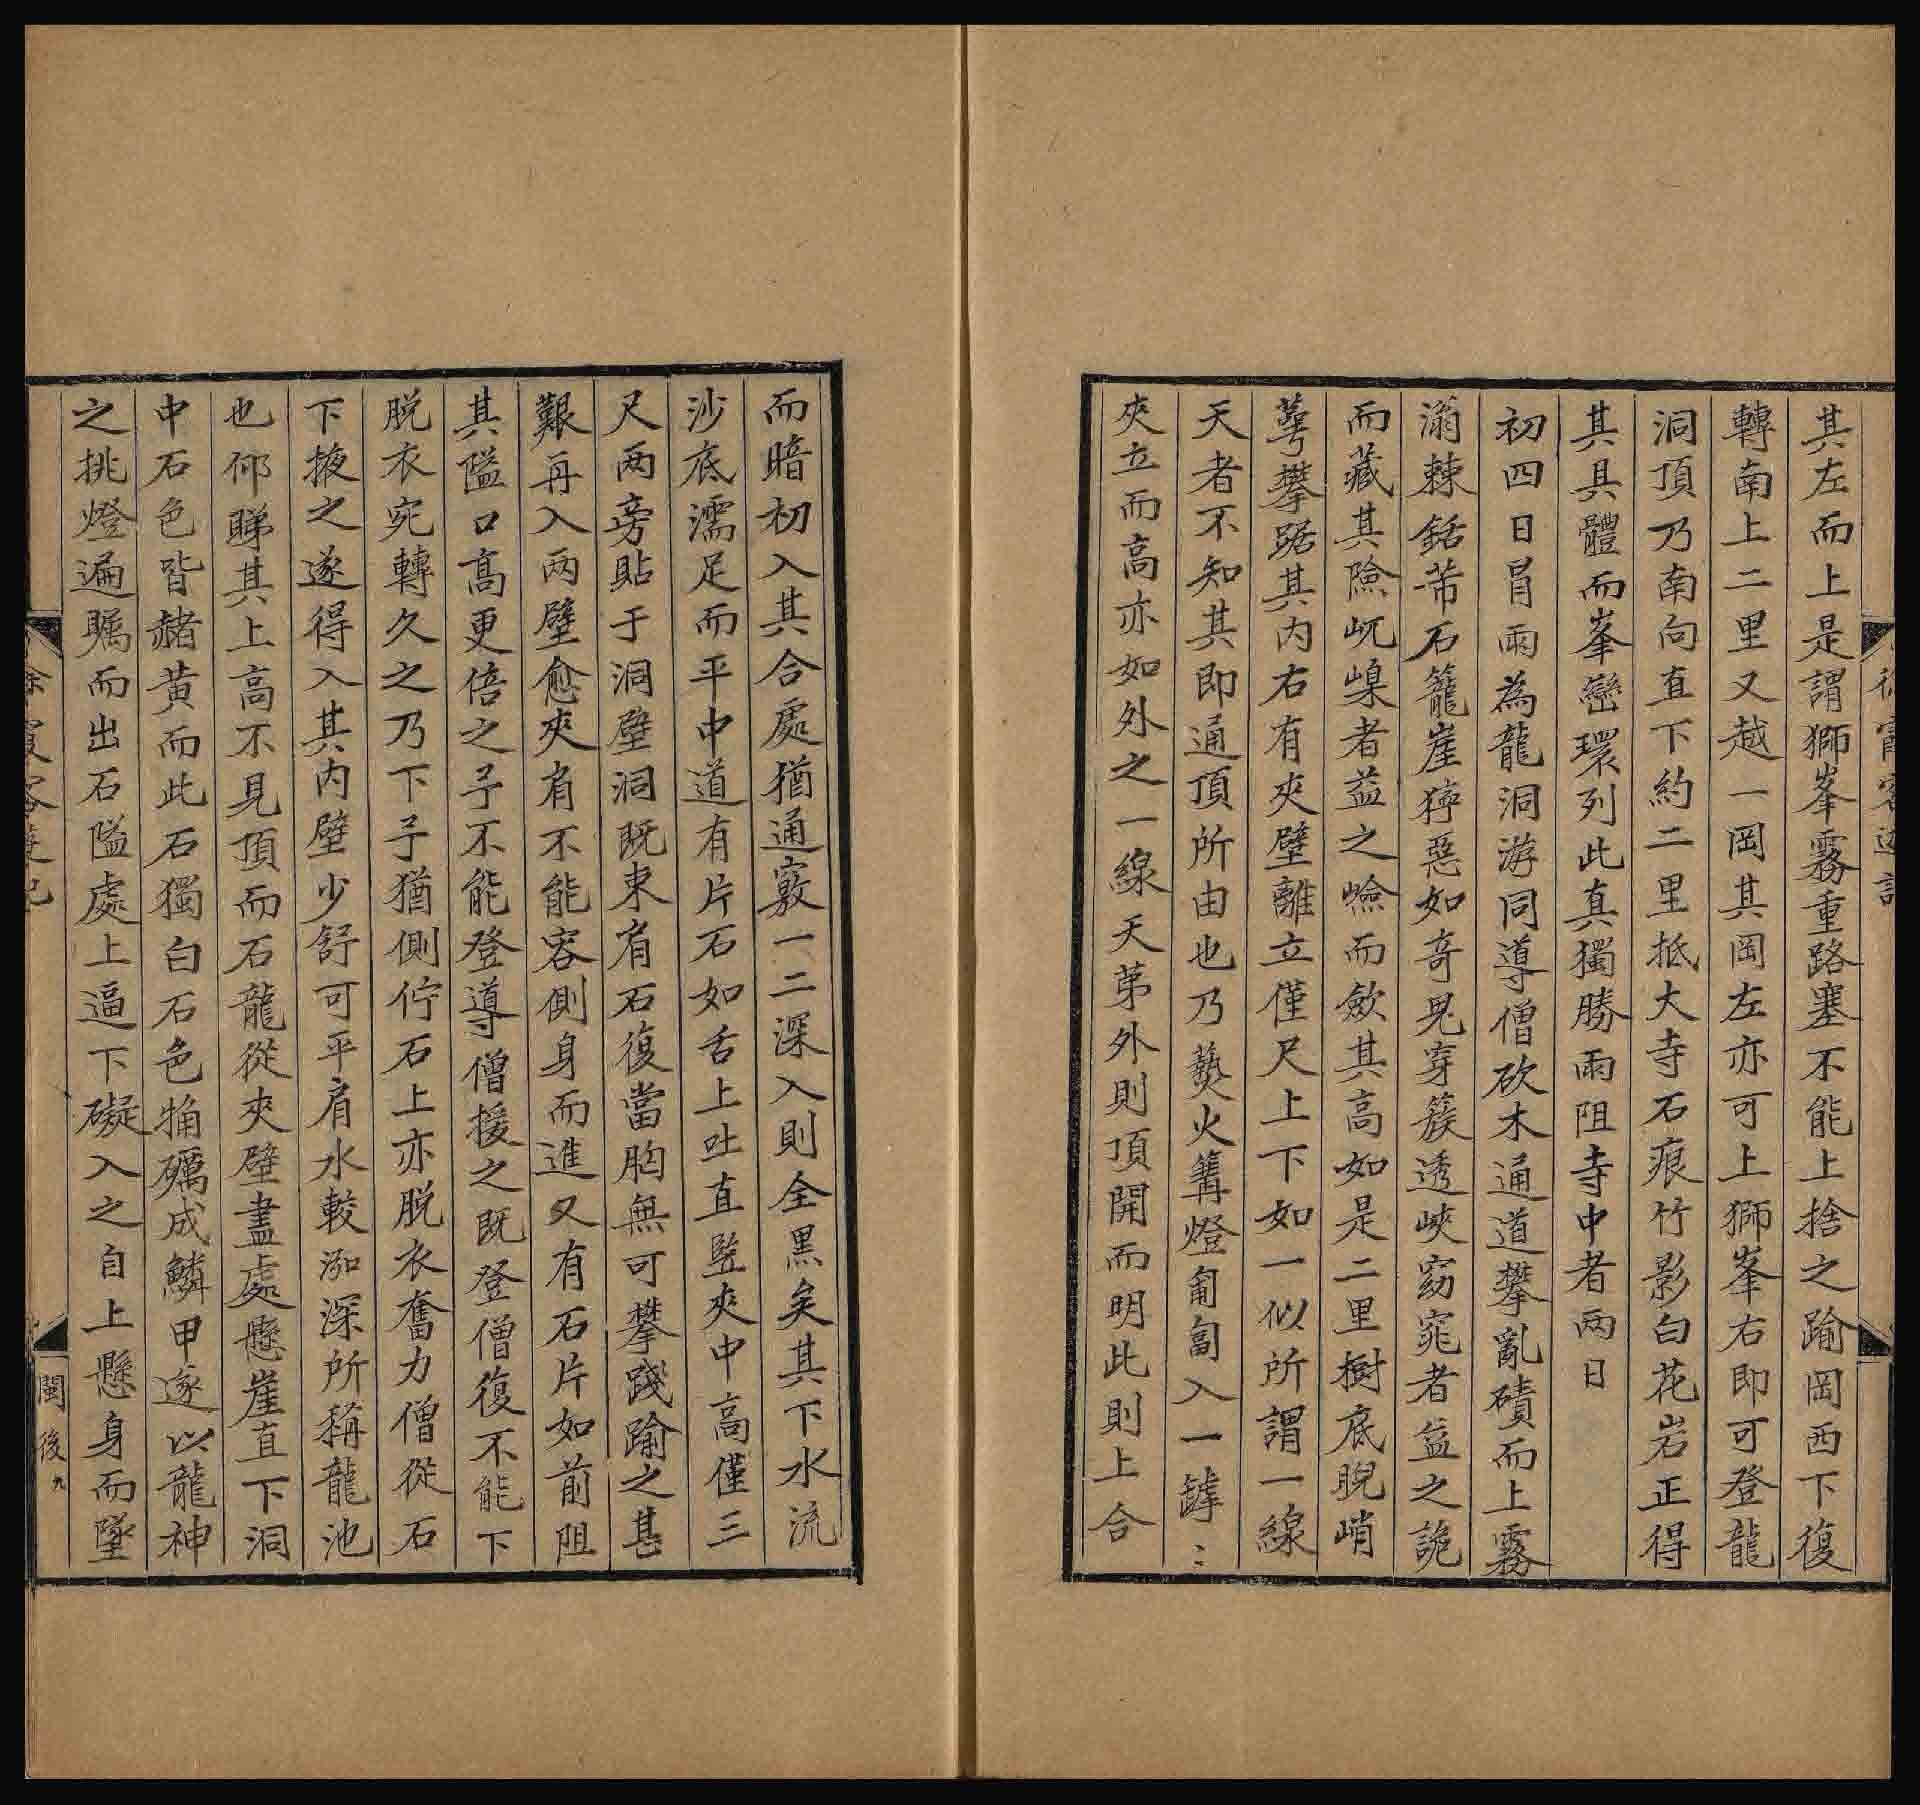 徐霞客遊記
其左而上是謂獅峯霧重路塞不能上捨之踰岡西下復
轉南上二里又越一岡其岡左亦可上獅峯右即可登龍
洞頂乃南向直下約二里抵大寺石痕竹影白花岩正得
其具體而峯巒環列此真獨勝雨阻寺中者兩日
初四日冐雨為龍洞游同導僧砍木通道攀亂磧而上霧
滃棘銛芾石籠崖獰惡如奇鬼穿簇透峽窈窕者益之詭
而藏其險屼嵲者益之嶮而歛其高如是二里樹底睨峭
蕚攀踞其内右有夾壁離立僅尺上下如一似所謂一線
天者不知其即通頂所由也乃爇火篝燈匍匐入一罅〻
夾立而高亦如外之一線天苐外則頂開而明此則上合
而暗初入其合處猶通竅一二深入則全黑矣其下水流
沙底濡足而平中道有片石如舌上吐直竪夾中高僅三
尺兩旁貼于洞壁洞既束肩石復當胸無可攀踐踰之甚
艱再入兩壁愈夾肩不能容側身而進又有石片如前阻
其隘口髙更倍之予不能登導僧援之既登僧復不能下
脱衣宛轉久之乃下予猶側佇石上亦脱衣奮力僧從石
下掖之遂得入其内壁少舒可平肩水較泓深所稱龍池
也仰睇其上高不見頂而石龍從夾壁盡處懸崖直下洞
中石色皆赭黄而此石獨白石色觕礪成鱗甲遂以龍神
之挑燈遍矚而出石隘處上逼下礙入之自上懸身而墜
徐霞客遊記
閩後
九